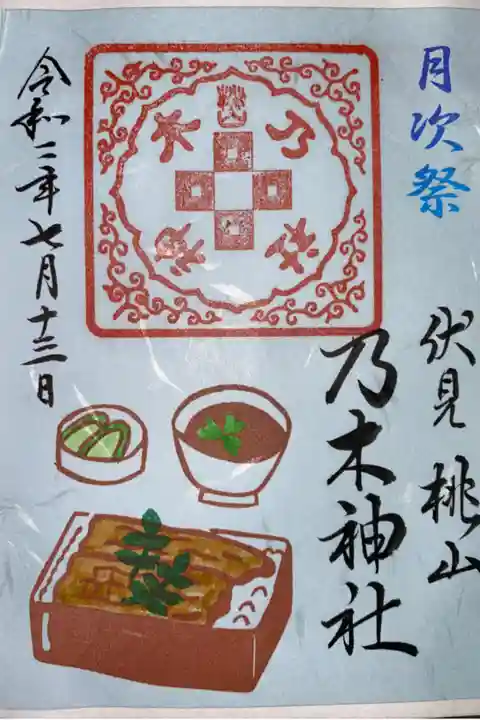 月次祭
伏見桃山
乃木神社
令和二年七月十三日